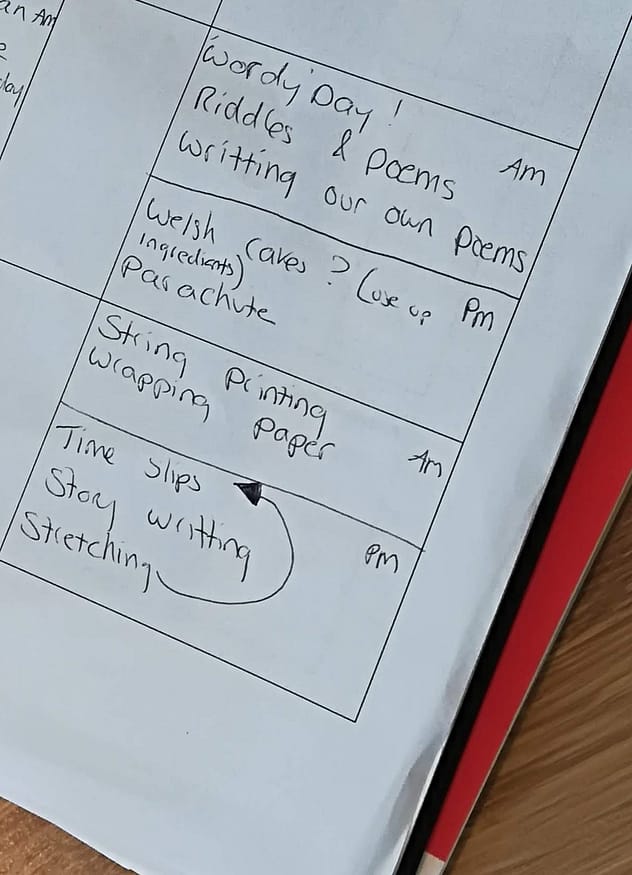 an Am
lay
'Wordy' Day!
Riddles & Poems Am
Writting our own Poems
Welsh Cakes? (use up Pm
ingredients)
Parachute
String Printing
Wrapping Paper Am
Time Slips
Story writting Pm
Stretching